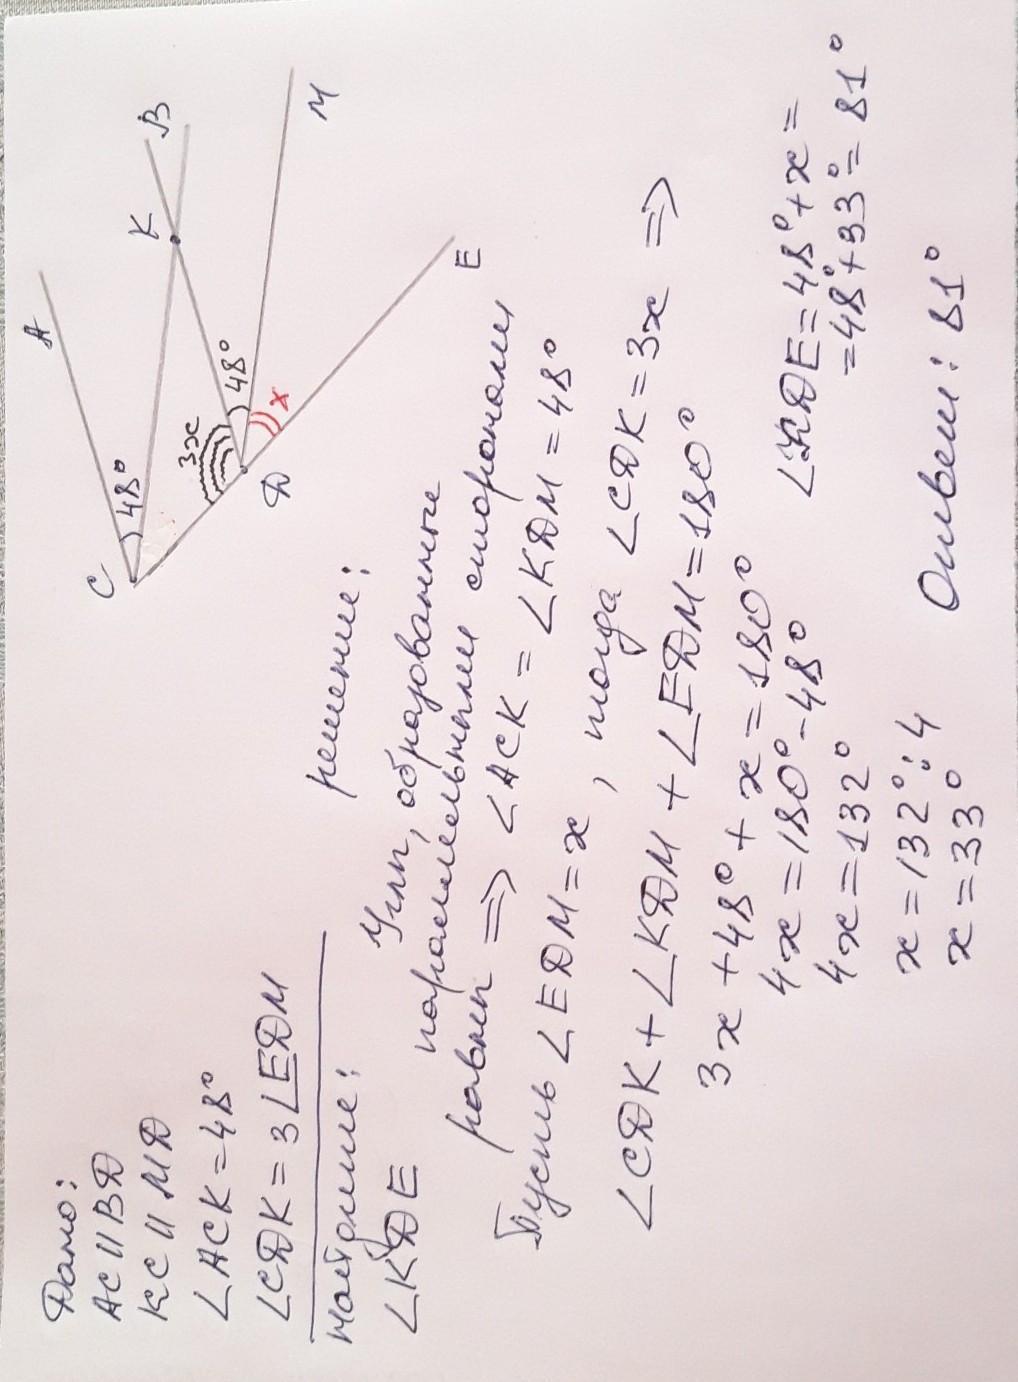 Дано:
AC || BD
KC || MD
∠ACK = 48°
∠CDK = 3∠EDM
Найдите:
∠KDE
A
B
K
C
48°
3x
48°
x
D
M
E
решение:
Углы, образованные
параллельными сторонами
равны => ∠ACK = ∠KDM = 48°
Пусть ∠EDM = x, тогда ∠CDK = 3x =>
∠CDK + ∠KDM + ∠EDM = 180°
3x + 48° + x = 180°
4x = 180° - 48°
4x = 132°
x = 132° : 4
x = 33°
∠KDE = 48° + x =
= 48° + 33° = 81°
Ответ: 81°